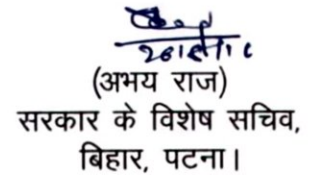 (अभय राज)
सरकार के विशेष सचिव,
बिहार, पटना।